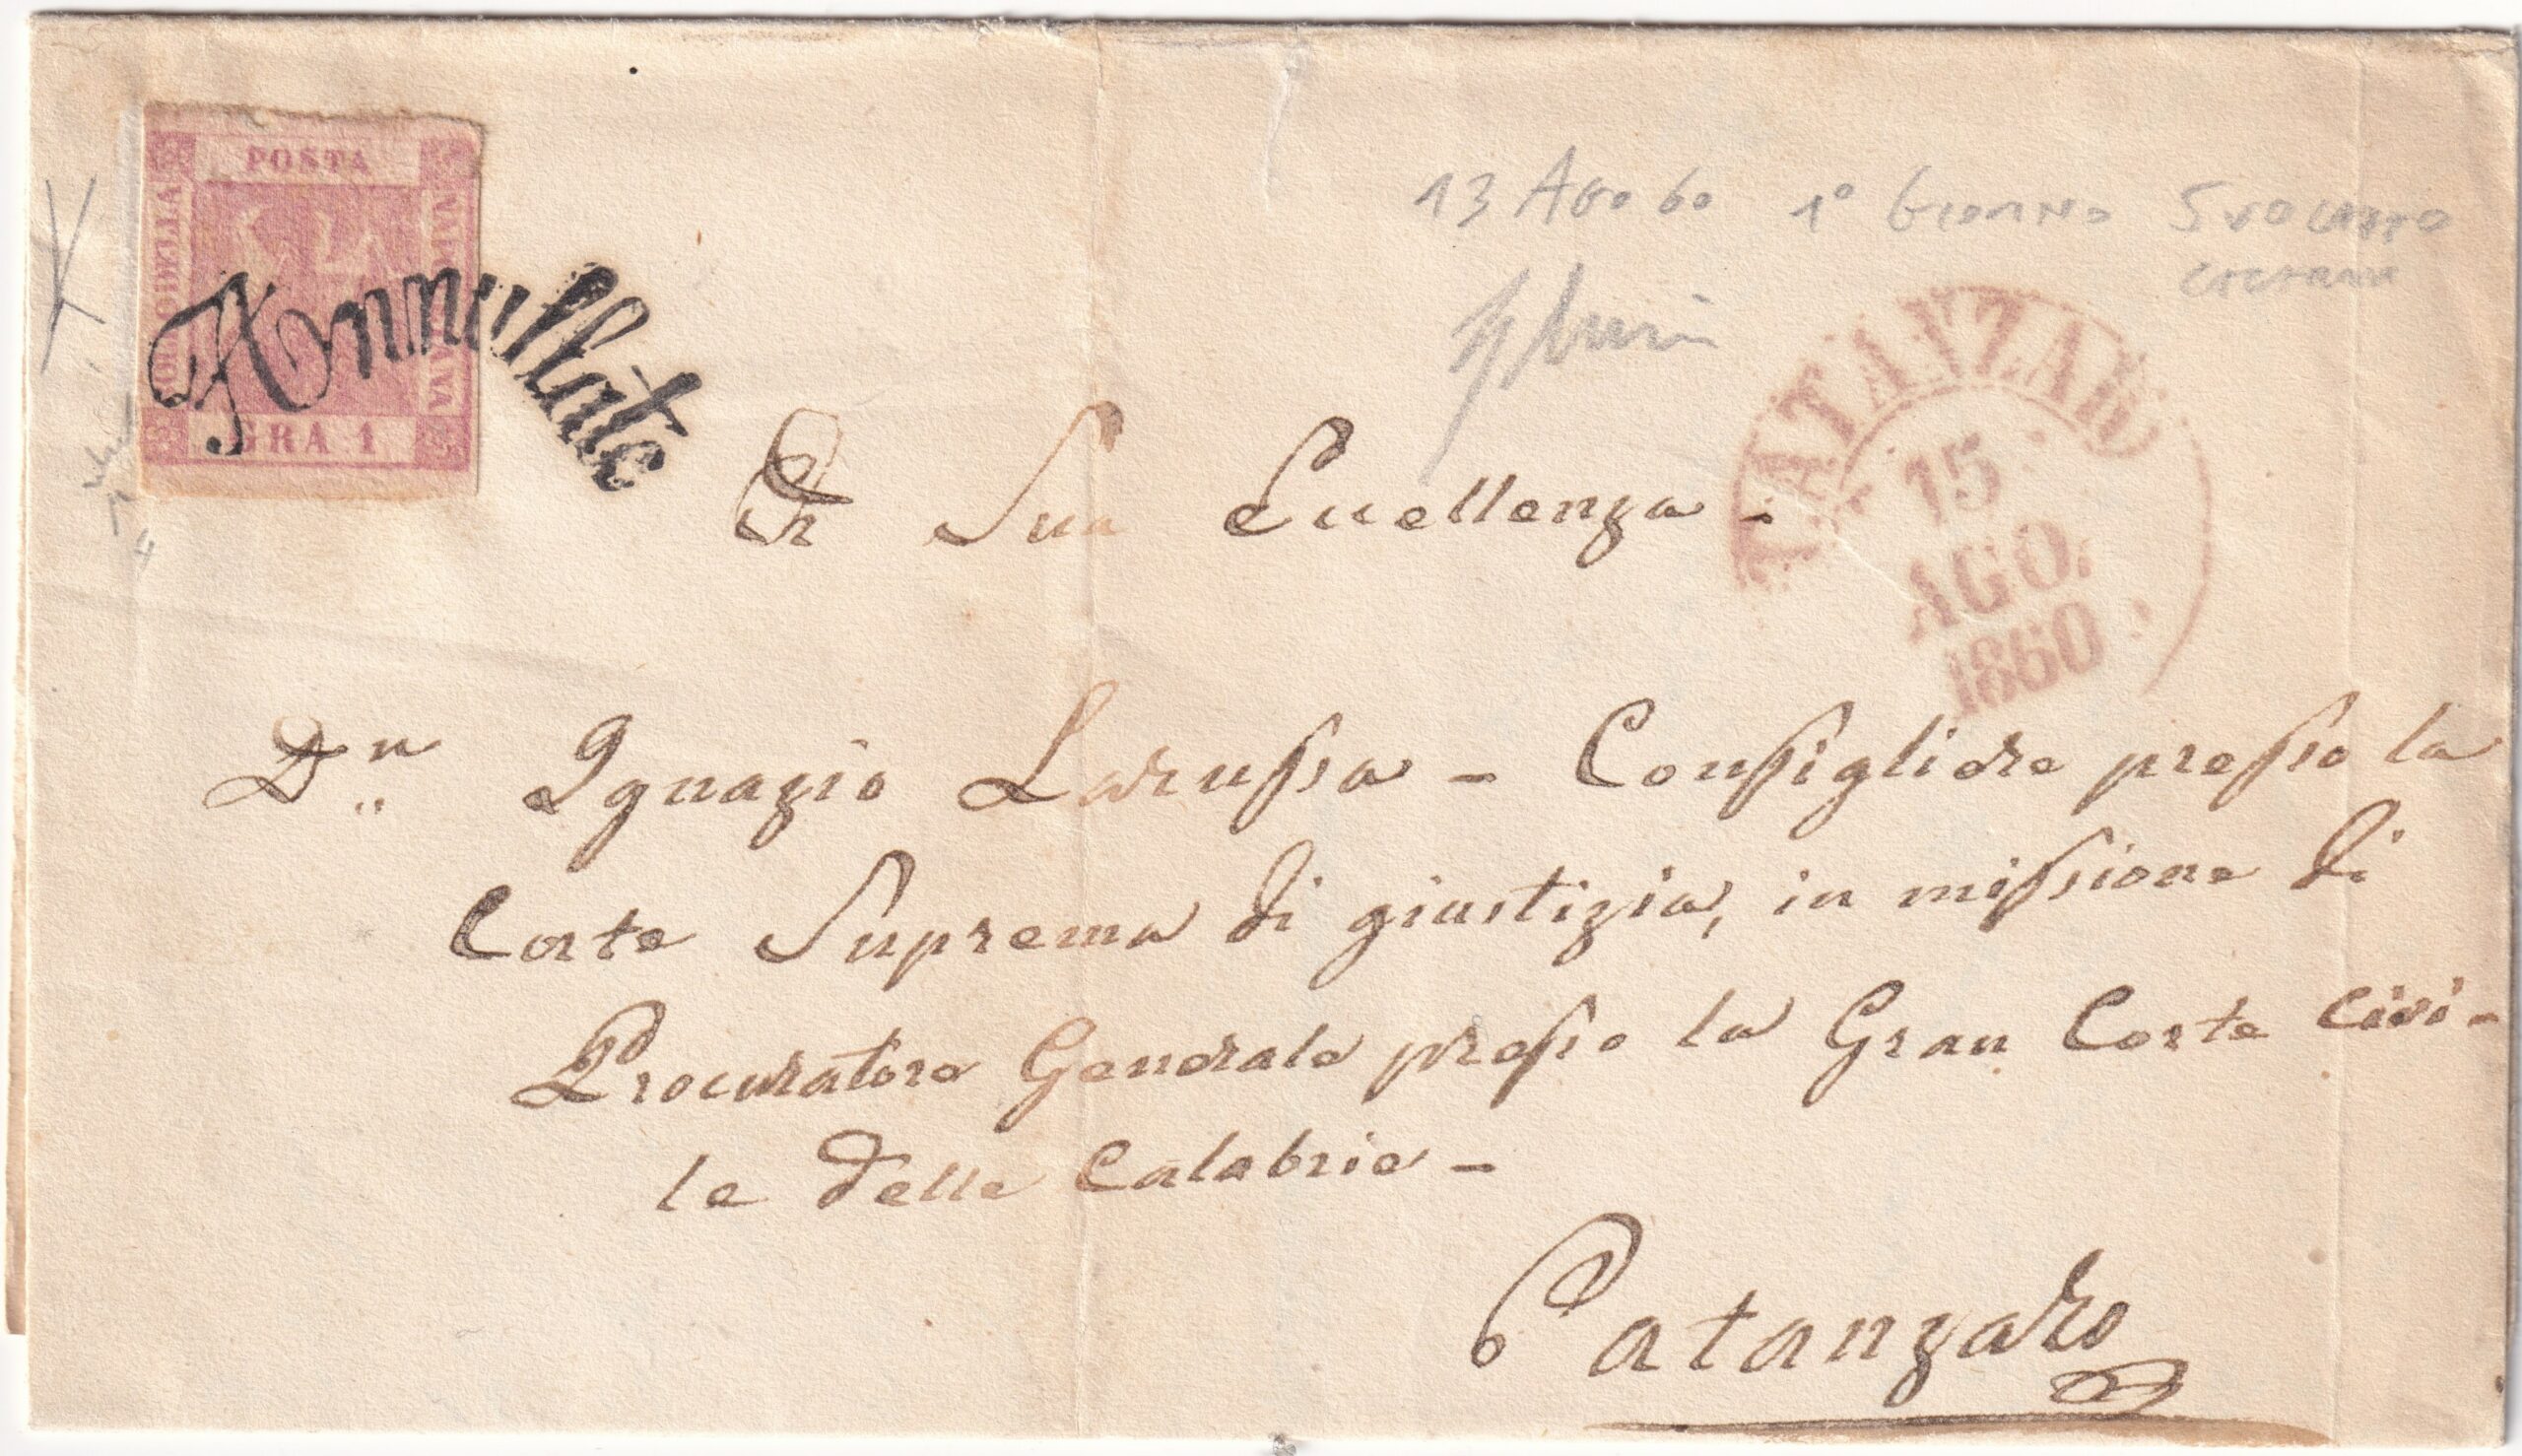 POSTA
BOLLO DELLA
NAPOLETANA
GRA 1
Annullato
13 Ago 60 1° Giorno
CATANZARO
15
AGO.
1860
A Sua Eccellenza -
Dn Ignazio Larussa - Consigliere presso la
Corte Suprema di giustizia, in missione di
Procuratore Generale presso la Gran Corte Civi-
le delle Calabrie -
Catanzaro